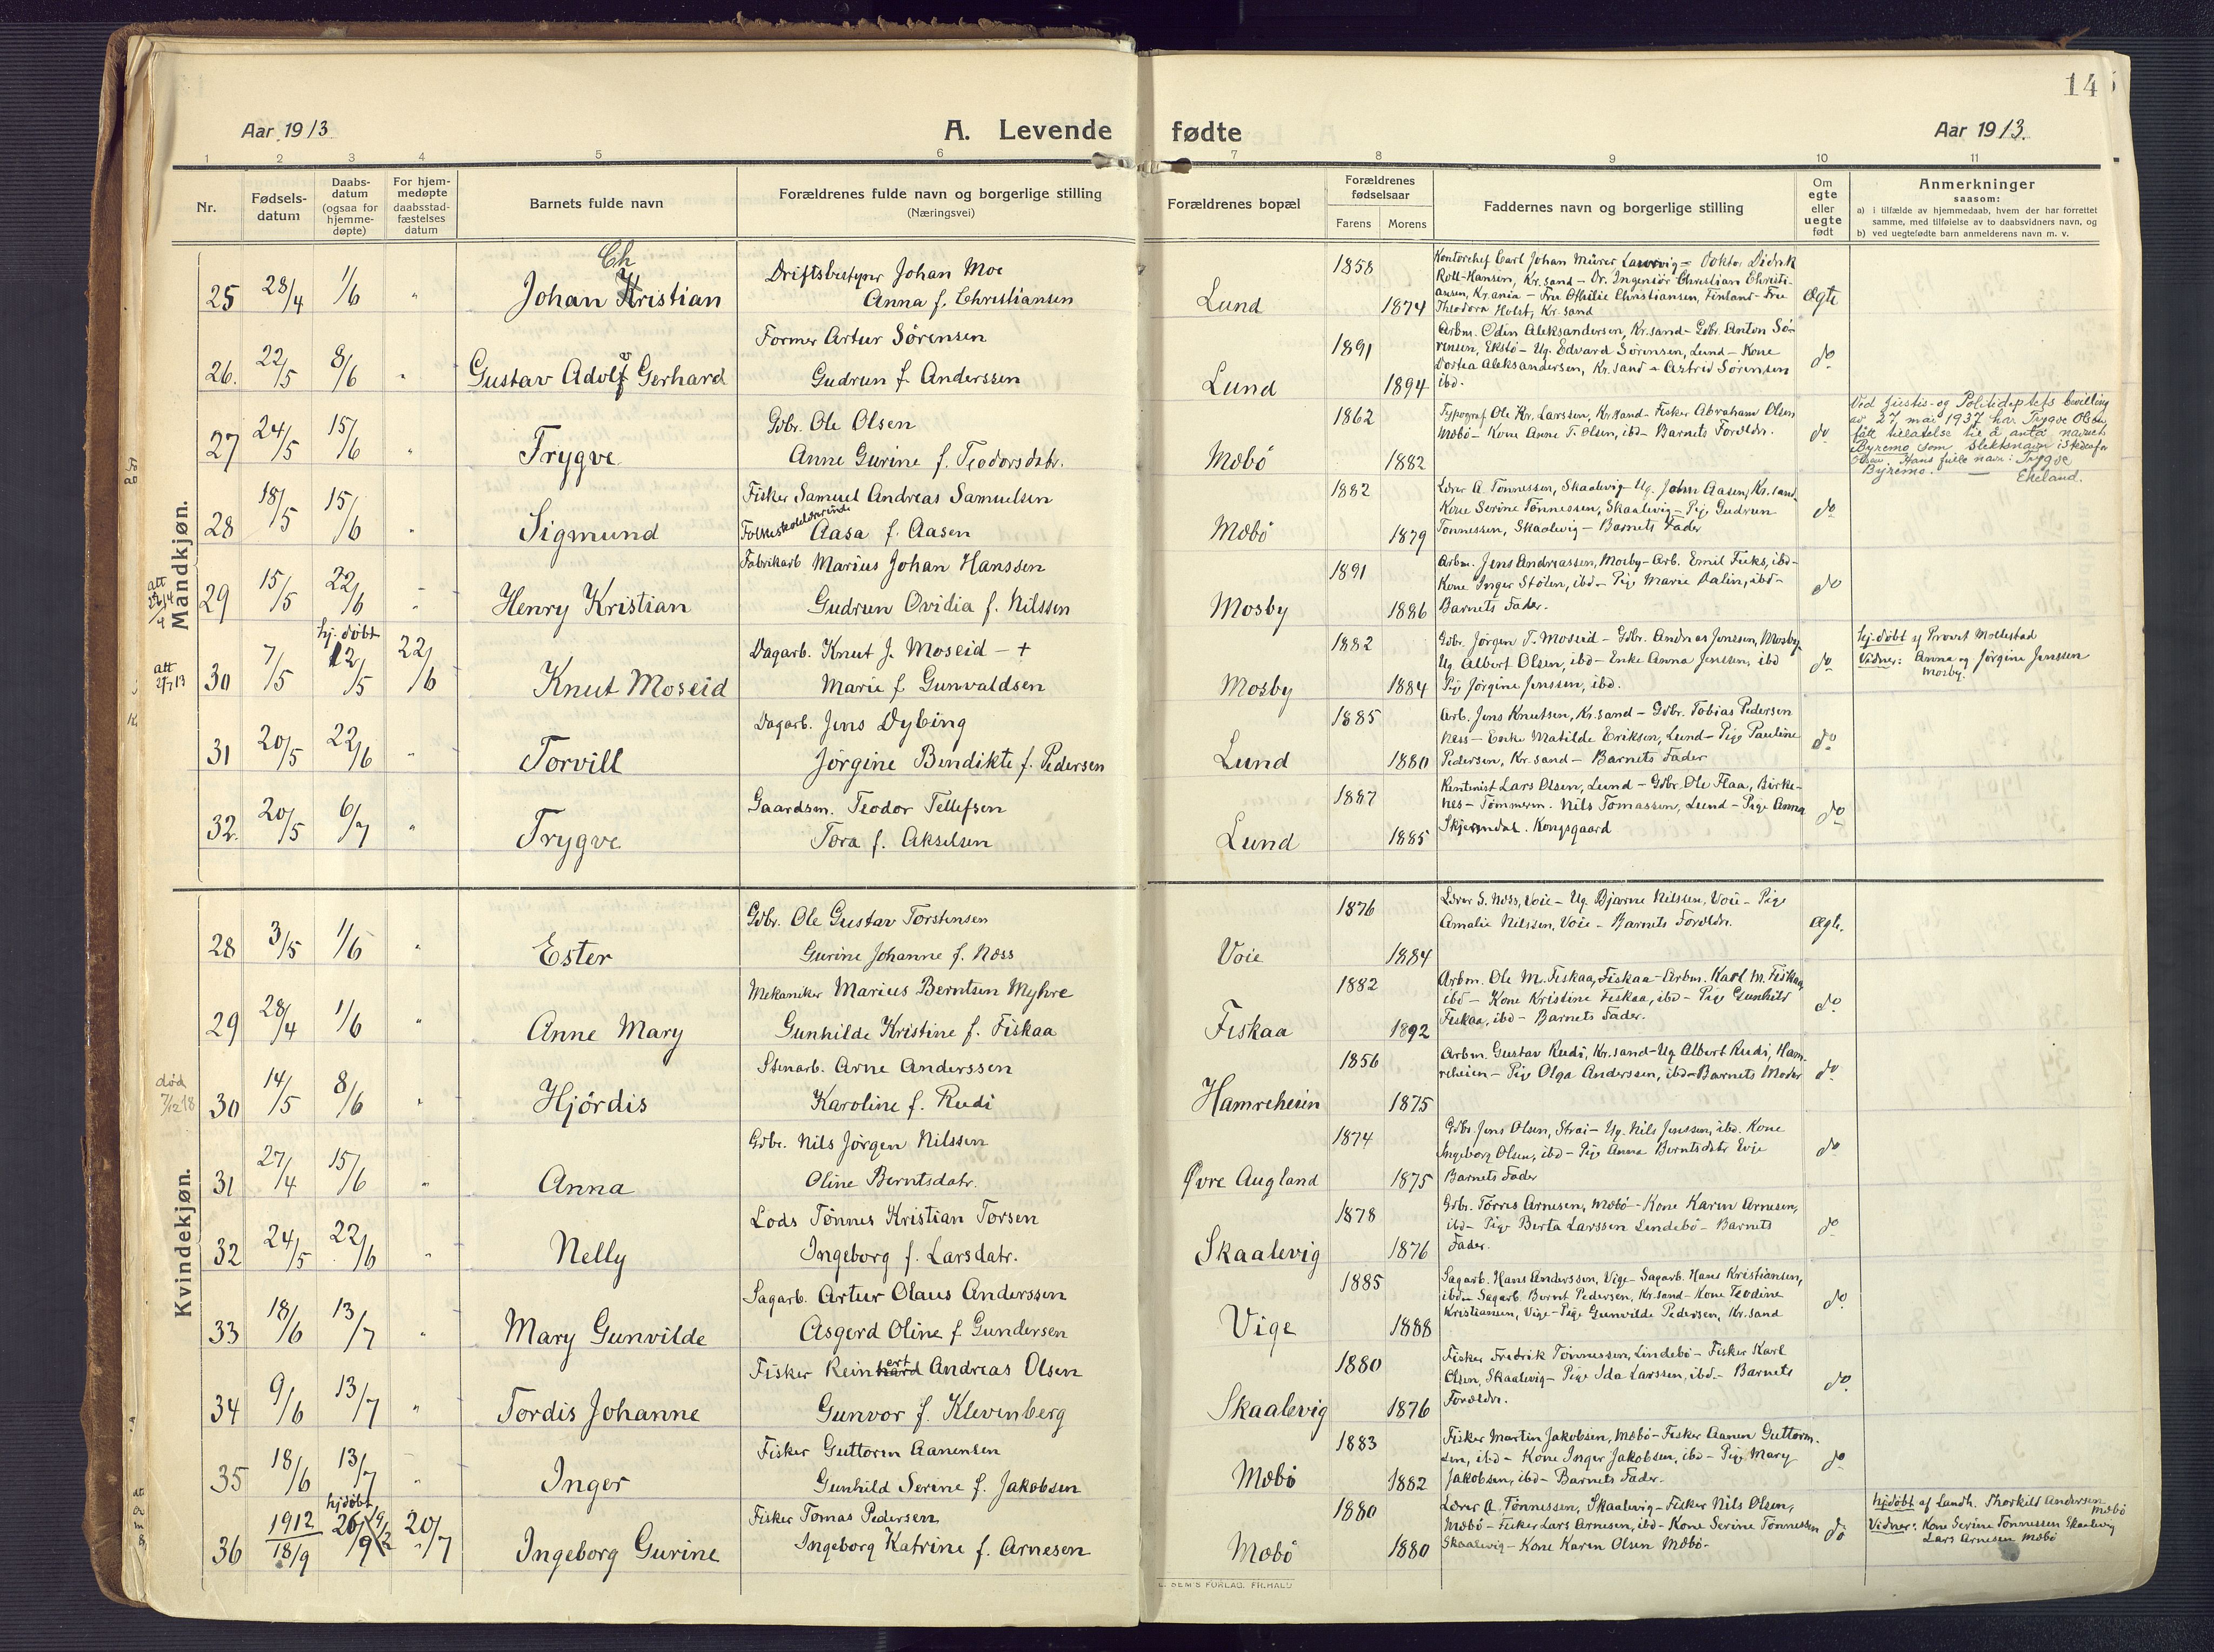 14
Aar 1913
A. Levende fødte
Aar 1913.
1 2 3 4 5 6 7 8 9 10 11
Nr.
Fødsels-
datum
Daabs-
datum
(ogsaa for
hjemme-
døpte)
For hjem-
medøpte
daabsstad-
fæstelses
datum
Barnets fulde navn
Forældrenes fulde navn og borgerlige stilling
(Næringsvei)
Forældrenes bopæl
Forældrenes
fødselsaar
Farens Morens
Faddernes navn og borgerlige stilling
Om
egte
eller
uegte
født
Anmerkninger
saasom:
a) i tilfælde av hjemmedaab, hvem der har forrettet
samme, med tilføielse av to daabsvidners navn, og
b) ved uegtefødte barn anmelderens navn m. v.
Mandkjøn.
25 28/4 1/6 "
Ch
Johan Kristian
Driftsbestyrer Johan Moe
Anna f. Christiansen
Lund 1858 1874
Kontorchef Carl Johan Mürer Laurvig – Doktor Didrik
Roll-Hansen, Kr.sand – Dr. Ingeniør Christian Christi-
ansen, Kr.ania – Fru Othilie Christiansen, Finland – Fru
Theodora Holst, Kr.sand
Ægte
26. 22/5 8/6 "
Gustav Adolf Gerhard
Former Artur Sørensen
Gudrun f. Anderssen
Lund 1891 1894
Arbm. Odin Aleksandersen, Kr.sand – Gdbr. Anton Sø-
rensen, Ekstø – Ug. Edvard Sørensen, Lund – Kone
Dortea Aleksandersen, Kr.sand – Astrid Sørensen
ibd.
do
27 24/5 15/6 "
Trygve
Gdbr. Ole Olsen
Anne Gurine f. Teodorsdatr.
Mæbø 1862 1882
Typograf Ole Kr. Larssen, Kr.sand – Fisker Abraham Olsen
Mæbø – Kone Anne T. Olsen, ibd – Barnets Forældr.
do
Ved Justis- og Politideptets bevilling
av 27 mai 1937 har Trygve Olsen
fått tillatelse til å anta navnet
Byremo som slektsnavn istedenfor
Olsen. Hans fulle navn: Trygve
Byremo. — Ekeland.
28 18/5 15/6 "
Sigmund
Fisker Samuel Andreas Samuelsen
Folkeskolelærerinde Aasa f. Aasen
Mæbø 1882 1879
Lærer A. Tønnessen, Skaalevig – Ug. John Aasen, Kr.sand.
Kone Serine Tønnessen, Skaalevig – Pig. Gudrun
Tønnessen, Skaalevig – Barnets Fader
do
att
22/4 14
29 15/5 22/6 "
Henry Kristian
Fabrikarb Marius Johan Hanssen
Gudrun Ovidia f. Nilssen
Mosby 1891 1886
Arbm. Jens Andreassen, Mosby – Arb. Emil Fuks, ibd –
Kone Inger Stølen, ibd – Pig. Marie Dalin, ibd –
Barnets Fader.
do
att
2/7 13
30 7/5 hj. døbt 12/5 22/6
Knut Moseid
Dagarb. Knut J. Moseid – +
Marie f. Gunvaldsen
Mosby 1882 1884
Gdbr. Jørgen T. Moseid – Gdbr. Andreas Jenssen, Mosby.
Ug. Albert Olsen, ibd – Enke Anna Jenssen, ibd
Pig. Jørgine Jenssen, ibd.
do
hj. døbt af Provst Mollestad
Vidner: Anna og Jørgine Jenssen
Mosby.
31 20/5 22/6 "
Torvill
Dagarb. Jens Dybing
Jørgine Bendikte f. Pedersen
Lund 1885 1880
Arb. Jens Knutsen, Kr.sand – Gdbr. Tobias Pedersen
Ness – Enke Matilde Eriksen, Lund – Pige Pauline
Pedersen, Kr.sand – Barnets Fader
do
32. 20/5 6/7 "
Trygve
Gaardsm. Teodor Tellefsen
Tora f. Akselsen
Lund 1887 1885
Rentenist Lars Olsen, Lund – Gdbr. Ole Flaa, Birke-
nes – Tømmerm. Nils Tomassen, Lund – Pige Anna
Skjerndal. Kongsgaard
do
Kvindekjøn.
28 3/5 1/6 "
Ester
Gdbr. Ole Gustav Torstensen
Gurine Johanne f. Næss
Voie 1876 1884
Lærer S. Næss, Voie – Ug. Bjarne Nilssen, Voie – Pige
Amalie Nilssen, Voie – Barnets Forældr.
Ægte.
29 28/4 1/6 "
Anne Mary
Mekaniker Marius Berntsen Myhre
Gunhilde Kristine f. Fiskaa
Fiskaa 1882 1892
Arbm. Ole M. Fiskaa, Fiskaa – Arbm. Karl M. Fiskaa,
ibd – Kone Kristine Fiskaa, ibd – Pige Gunhild
Fiskaa, ibd – Barnets Fader.
do
død
7/12 18
30 14/5 8/6 "
Hjördis
Stenarb. Arne Anderssen
Karoline f. Rudi
Hamreheien 1856 1875
Arbm. Gustav Rudi, Kr.sand – Ug. Albert Rudi, Ham-
reheien – Pige Olga Anderssen, ibd – Barnets Moder
do
31 27/4 15/6 "
Anna
Gdbr. Nils Jørgen Nilssen
Oline Berntsdatr.
Øvre Augland 1874 1875
Gdbr. Jens Olsen, Strai – Ug. Nils Jenssen, ibd. Kone
Ingeborg Olsen, ibd – Pige Anna Berntsdatr Evje
Barnets Fader
do
32 24/5 22/6 "
Nelly
Lods Tønnes Kristian Torsen
Ingeborg f. Larsdatr.
Skaalevig 1878 1876
Gdbr. Tørres Arnesen, Mæbø – Kone Karen Arnesen,
ibd – Pige Berta Larssen Lindebø – Barnets
Fader.
do
33 18/6 13/7 "
Mary Gunvilde
Sagarb. Artur Olaus Anderssen
Asgerd Oline f. Gundersen
Vige 1885 1888
Sagarb. Hans Anderssen, Vige – Sagarb. Hans Kristiansen,
ibd – Sagarb. Bernt Pedersen, Kr.sand – Kone Teodine
Kristiansen, Vige – Pige Gunvilde Pedersen, Kr.sand
do
34 9/6 13/7 "
Tordis Johanne
Fisker Reinhard ert Andreas Olsen
Gunvor f. Klevenberg
Skaalevig 1880 1876
Fisker Fredrik Tønnessen, Lindebø – Fisker Karl
Olsen, Skaalevig – Pige Ida Larssen, ibd. – Barnets
Forældr.
do
35 18/6 13/7 "
Inger
Fisker Guttorm Aanensen
Gunhild Serine f. Jakobsen
Mæbø 1883 1882
Fisker Martin Jakobsen, Mæbø – Fisker Aanen Guttorm-
sen, ibd – Kone Inger Jakobsen, ibd – Pig. Mary
Jakobsen, ibd – Barnets Fader.
do
36 1912 18/9 hjdøbt 26/9 20/7
Ingeborg Gurine
Fisker Tomas Pedersen
Ingeborg Katrine f. Arnesen
Mæbø 1880 1880
Lærer A. Tønnessen, Skaalevig – Fisker Nils Olsen,
Mæbø – Fisker Lars Arnesen, ibd – Kone Serine Tønnessen
Skaalevig – Kone Karen Olsen Mæbø –
do
hjdøbt af Landh. Thorkild Andersen
Mæbø
Vidner: Kone Serine Tønnessen Skaalevig
Lars Arnesen Mæbø
SEM'S FORLAG. FR.HALD